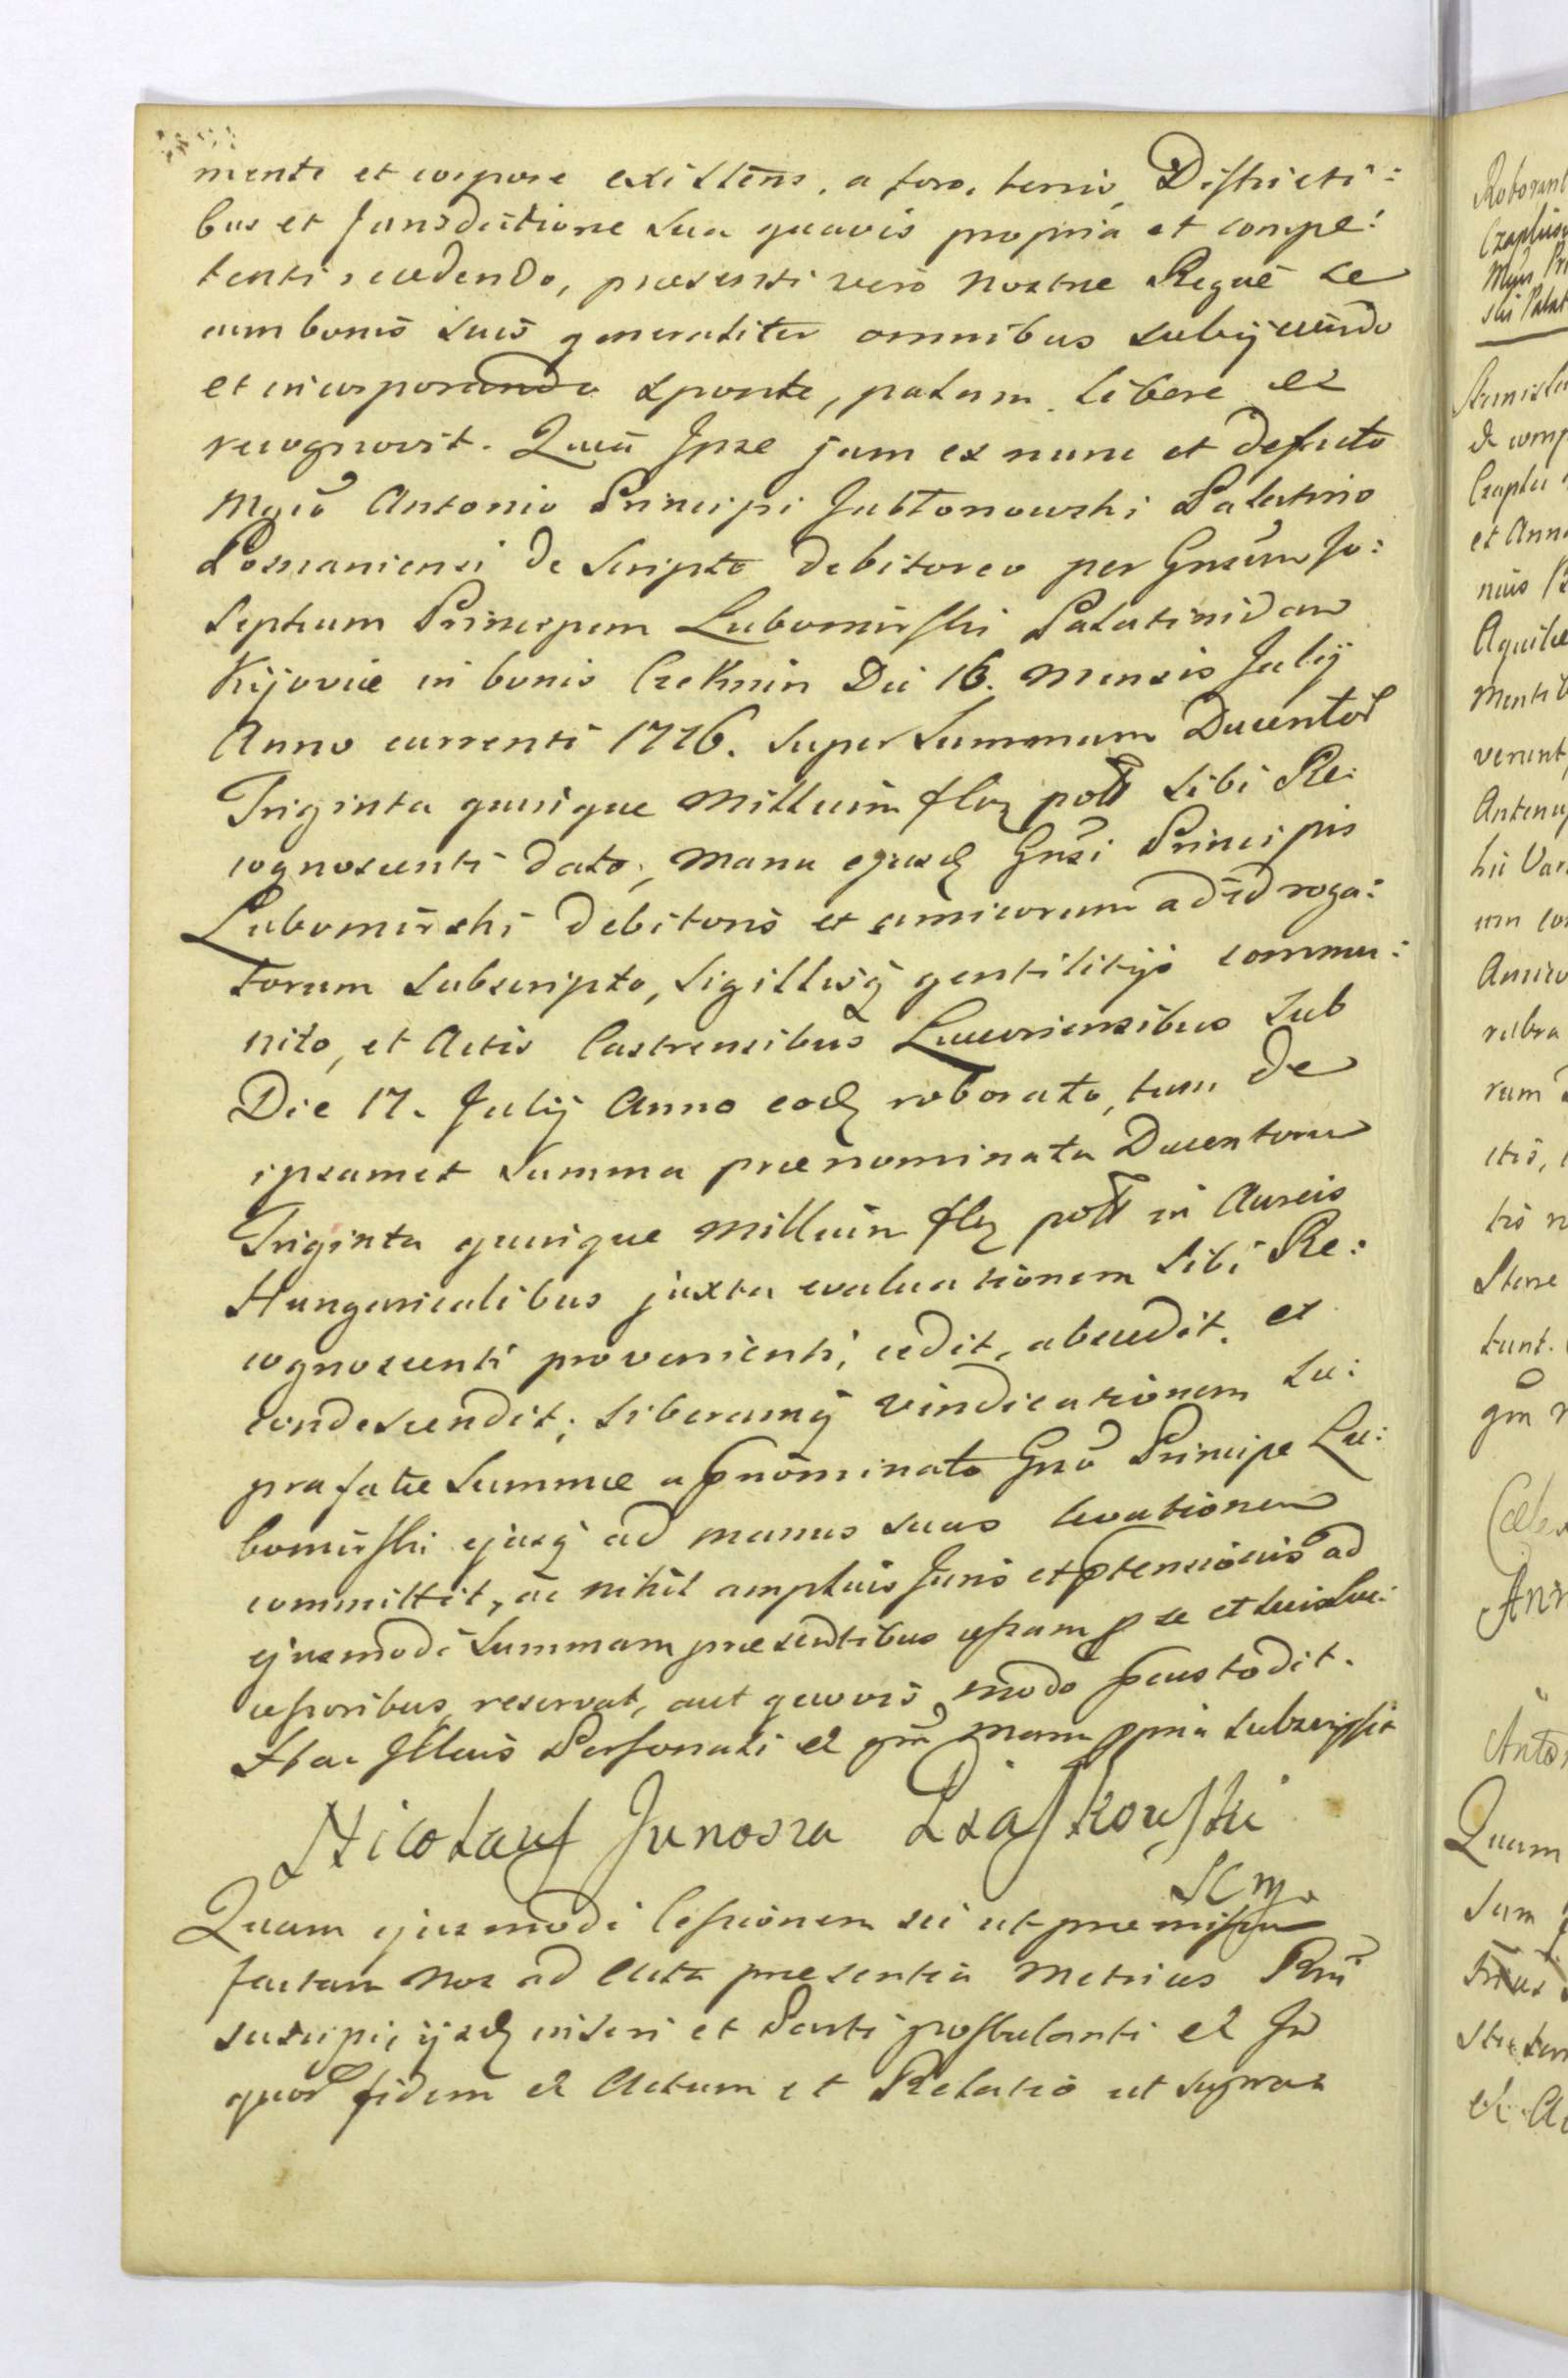 mente et corpore existens, a foro, terris, Districti:
bus et Jurisdictione sua quavis propria et compe:
tenti recedendo, præsenti vero nostræ Regnē se
cum bonis suis generaliter omnibus subijciendo
et incorporando sponte, palam, libere &
recognovit. Quiā Ipse jam ex nunc et defacto
Mgcō Antonio Principi Jabłonowski Palatino
Posnaniensi de scripto debitoreo per Gnsūm Jo:
sephum Principem Lubomirski Palatinidam
Kijoviæ in bonis Czeknin Die 16. Mensis Julij
Anno currenti 1776. super Summam Ducentor
Triginta quinque Millium flor poll sibi Re:
cognoscenti dato, manu ejusd Gnsi Principis
Lubomirski debitoris et amicorum ad id roga:
torum subscripto, sigillisq gentilitijs commu:
nito, et Actis Castrensibus Luceoriensibus sub
Die 17. Julij Anno eod roborato, tum de
ipsamet Summa prænominata Ducentorum
Triginta quinque Millium flor poll in Aureis
Hungaricalibus juxta evaluationem sibi Re:
cognoscenti provenienti, cedit, abscedit, et
condescendit; liberamq vindicationem su:
prafatæ Summæ a pnōminato Gnsō Principe Lu:
bomirski ejusq ad manus suas levationem
committit, ac nihil amplius Juris et ptensionis ad
ejusmodi Summam præsentibus cessam p se et suis suc:
cessoribus reservat, aut quovis modo pcustodit.
Hac Illius Personali & gm̄ manu ppria subscripsit
Nicolaus Junosza Piaskowski
SCm.
Quam ejusmodi Cessionem sic ut præmissum
factam nos ad Acta præsentia Metrices Rnī
suscipi, ijsd inseri et Parti postulanti & In
quor fidem & Actum et Relatio ut supra